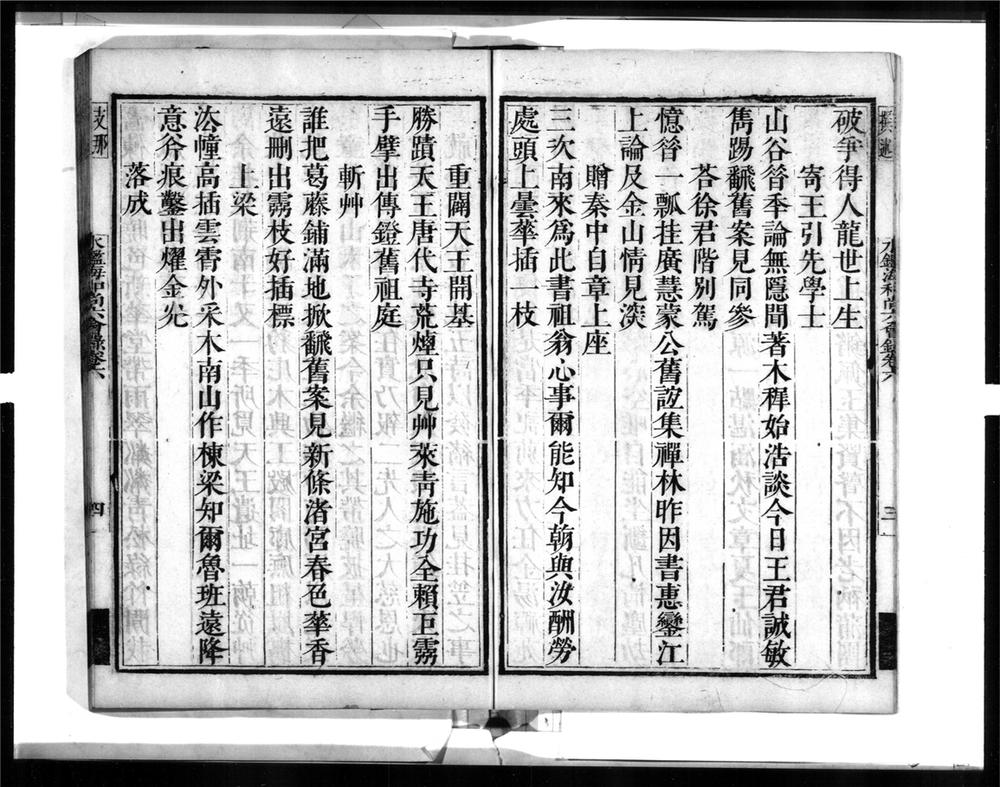 撰述
水鑑海和尚六會錄卷六
三
破爭得人龍世上生
寄王引先學士
山谷昝季論無隱聞著木穉始浩談今日王君誠敏
雋踢飜舊案見同參
荅徐君階別駕
憶昝一瓢挂廣慧蒙公舊誼集禪林昨因書惠鑾江
上論及金山情見湥
贈秦中自章上座
三次南來爲此書祖翁心事爾能知今朝與汝酬勞
處頭上曇華插一枝
重闢天王開基
勝蹟天王唐代寺荒煙只見艸萊靑施功全賴巨靈
手擘出傳鐙舊祖庭
斬艸
誰把葛藤鋪滿地掀飜舊案見新條渚宮春色華香
遠刪出靈枝好插標
上梁
法幢高插雲霄外采木南山作棟梁知爾魯班遠降
意斧痕鑿出燿金光
落成
支那
水鑑海和尚六會錄卷六
四